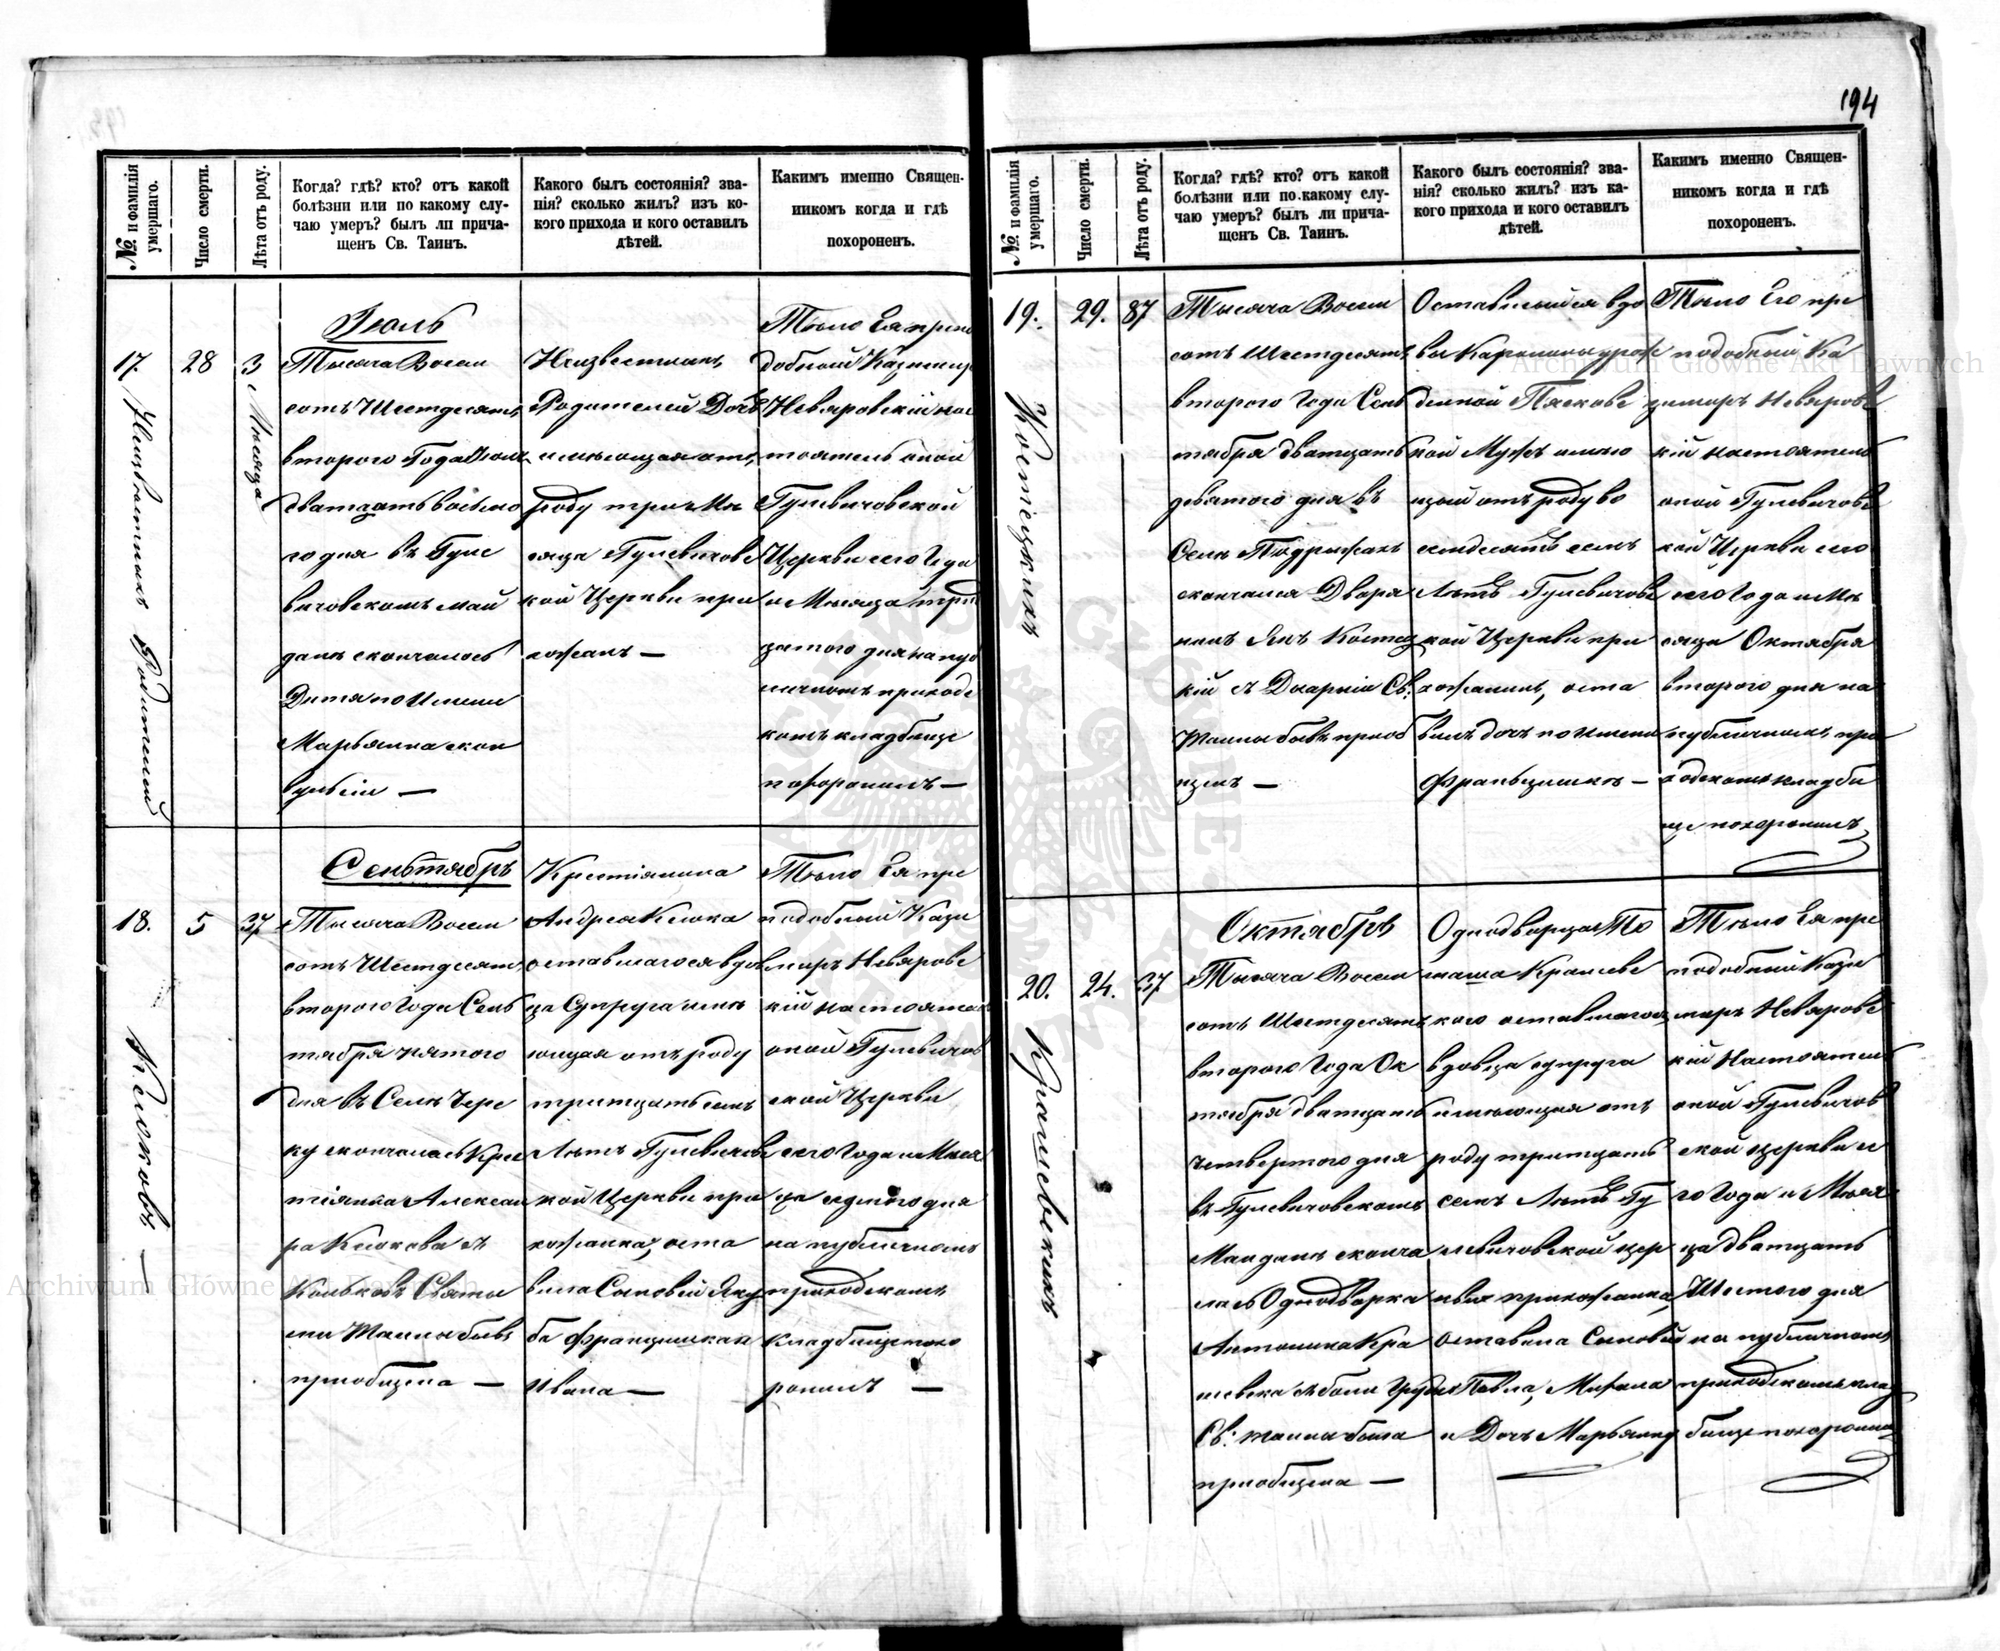 194
№. и фамилія умершаго.
Число смерти.
Лѣта отъ роду.
Когда? гдѣ? кто? отъ какой
болѣзни или по какому слу-
чаю умеръ? былъ ли прича-
щенъ Св. Таинъ.
Какого былъ состоянія? зва-
нія? сколько жилъ? изъ ко-
кого прихода и кого оставилъ
дѣтей.
Какимъ именно Священ-
никомъ когда и гдѣ
похороненъ.
17.
Неизвестныхъ Родителей
28
3
Месяца
Іюль
Тысяча Восем
сотъ Шестдесятъ
второго Года Іюля
дватцать восмо
го дня въ Гуле
вичовскомъ май
данѣ скончалось
Дитя по Имени
Марьянна
Неизвестныхъ
Родителей Дочь
имѣющая отъ
роду три мѣ
сяца Гулевичовс
кой Церкви при
хожанъ —
Тѣло Ея препо
добный Казимир
Неваровскій нас
тоятель оной
Гулевичовской
Церкви сего Года
и Месяца трит
цатого дня на пуб
личномъ приходс
комъ кладбище
похоронилъ —
18.
Клюковъ —
5
37
Сентябръ
Тысяча Восем
сотъ Шестдесятъ
второго Года Сен
тября пятого
дня въ Селѣ Чере
ку скончалась Крес
тіянка Алексан
ра Клюкова съ
Святы
ми Таины бывъ
приобщена —
Крестіянина
Андрея Клюка
оставшагося вдов
ца Супруга имѣ
ющая отъ роду
тритцать семь
Лѣтъ Гулевичовс
кой Церкви при
хожанка, оста
вила Сыновей Яку
ба Францишка и
Ивана —
Тѣло Ея пре
подобный Кази
миръ Неваровс
кій настоятель
оной Гулевичов
ской Церкви
сего Года и Меся
ца седмого дня
на публичномъ
приходскомъ
кладбище похо
ронилъ —
№. и фамилія умершаго.
Число смерти.
Лѣта отъ роду.
Когда? гдѣ? кто? отъ какой
болѣзни или по какому слу-
чаю умеръ? былъ ли прича-
щенъ Св. Таинъ.
Какого былъ состоянія? зва-
нія? сколько жилъ? изъ ка-
кого прихода и кого оставилъ
дѣтей.
Какимъ именно Священ-
никомъ когда и гдѣ
похороненъ.
19.
Костецкихъ
29.
87
Тысяча Восем
сотъ Шестдесятъ
второго Года Сен
тября дватцать
девятого дня въ
Селѣ
скончался Дворя
нинъ Янъ Костец
кій съ Св:
Таины бывъ приоб
щенъ —
Оставшыйся вдо
вы Каролины урож
денной Пясковс
кой Мужъ имѣю
щый отъ роду во
семдесятъ семь
Лѣтъ Гулевичовс
кой Церкви при
хожанинъ, оста
вилъ дочь по имени
Францишка —
Тѣло Его пре
подобный Ка
зимиръ Неваровс
кій настоятель
оной Гулевичовс
кой Церкви сего
сего Года и Мѣ
сяца Октября
второго дня на
публичномъ при
ходскомъ кладби
ще похоронилъ
20.
Крашевскихъ
24.
37
Октябръ
Тысяча Восем
сотъ Шестдесятъ
второго Года Ок
тября дватцать
четвертого дня
въ Гулевичовскомъ
Майданѣ сконча
лась Однодворка
Антонина Кра
шевска съ боли Груди
Св: таины была
приобщена —
Однодворца То
маша Крашевс
кого оставшагося
вдовца супруга
имѣющая отъ
роду тритцать
семь Лѣтъ Гу
левичовской цер
кви прихожанка,
оставила Сыновей
Павла, Михала
и Дочь Марьянну
Тѣло Ея пре
подобный Кази
миръ Неваровс
кій Настоятель
оной Гулевичов
ской церкви се
го Года и Меся
ца дватцать
Шестого дня
на публичномъ
приходскомъ клад
бище похоронилъ
Archiwum Główne Akt Dawnych
Archiwum Główne Akt Dawnych